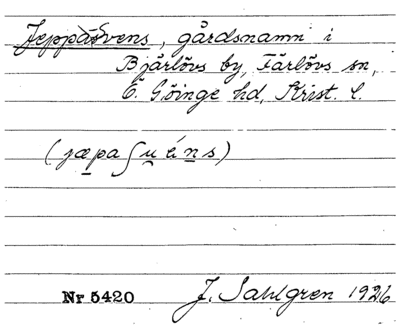 Jeppasvens, gårdsnamn i
Bjärlövs by, Färlövs sn,
Ö. Göinge hd, Krist. l.
(jæpaʃu̯éns)
Nr 5420 J. Sahlgren 1926